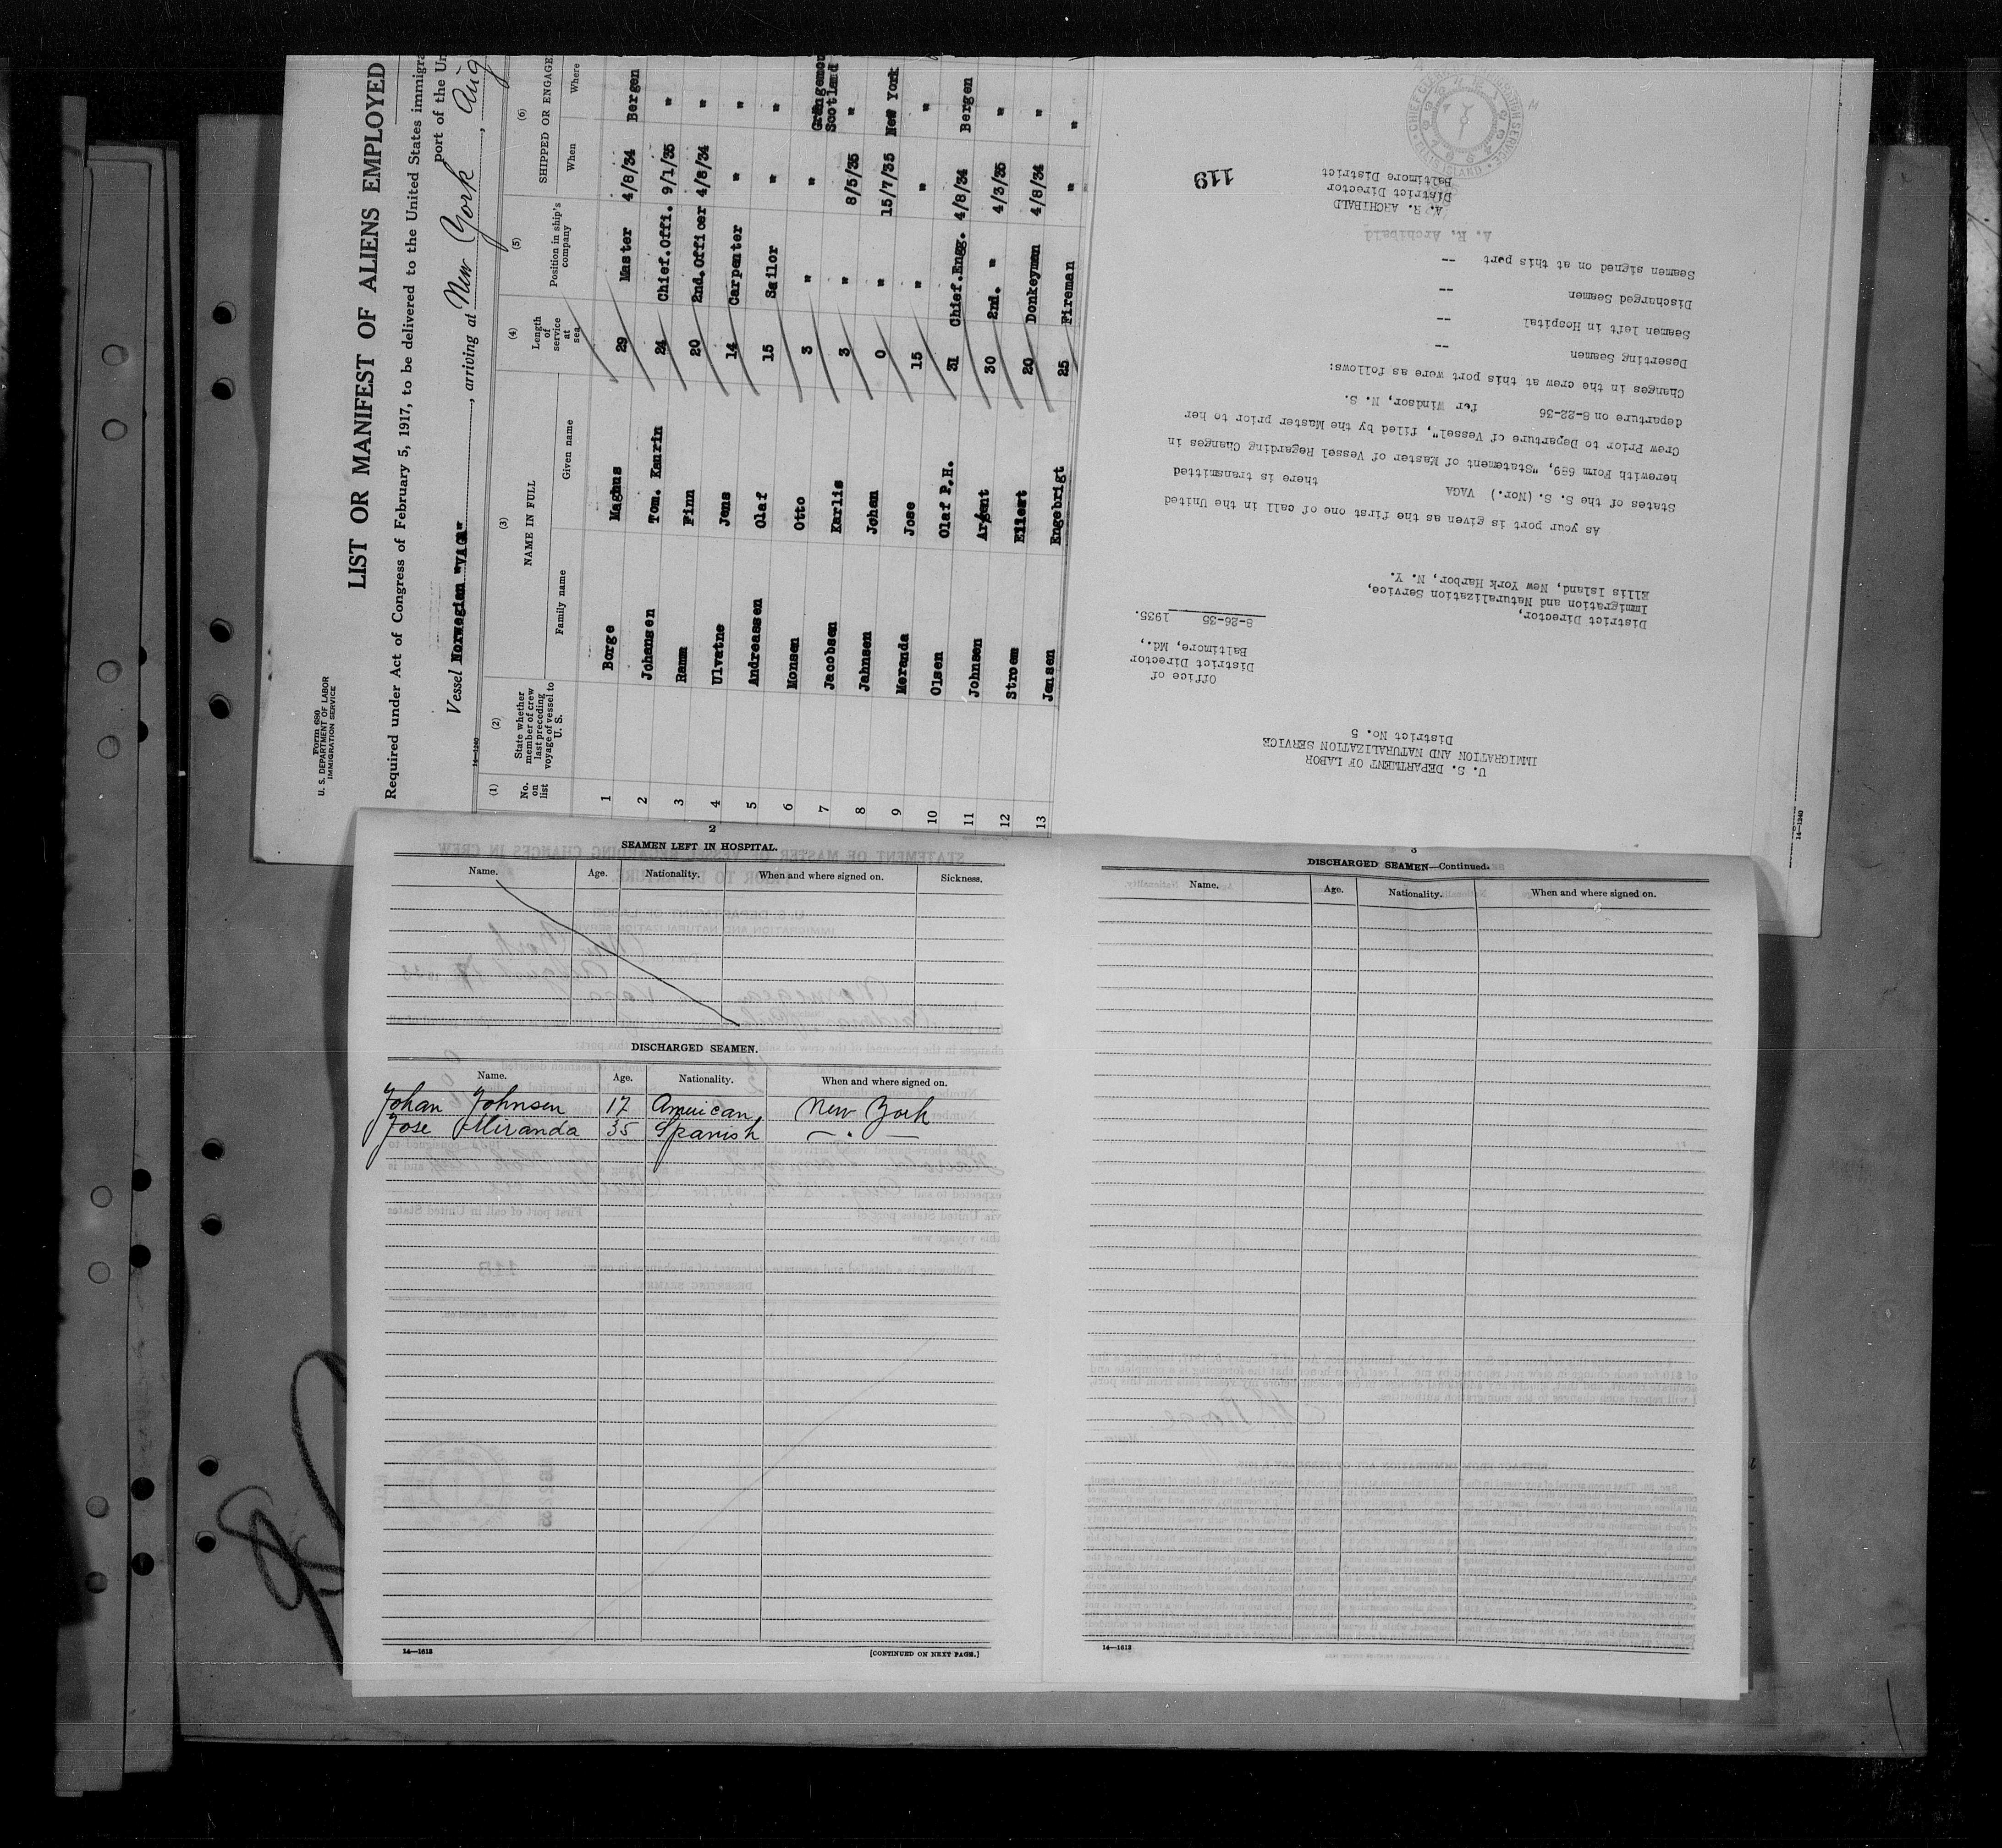 Form 680
U. S. DEPARTMENT OF LABOR
IMMIGRATION SERVICE
LIST OR MANIFEST OF ALIENS EMPLOYED
Required under Act of Congress of February 5, 1917, to be delivered to the United States immigra
port of the Un
Vessel Norwegian "VAGA", arriving at New York, Aug
14—1240
(1) No. on list
(2) State whether member of crew last preceding voyage of vessel to U. S.
(3) NAME IN FULL
Family name
Given name
(4) Length of service at sea
(5) Position in ship's company
(6) SHIPPED OR ENGAGE
When
Where
1 Borge Magnus 29 Master 4/8/34 Bergen
2 Johansen Tom. Kaurin 24 Chief.Offi. 9/1/35 "
3 Ramm Finn 20 2nd.Officer 4/8/34 "
4 Ulvatne Jens 14 Carpenter " "
5 Andreassen Olaf 15 Sailor " "
6 Monsen Otto 3 " " Grangemou Scotland
7 Jacobsen Karlis 3 " 8/5/35 "
8 Jahnsen Johan 0 " 15/7/35 New York
9 Merenda Jose 15 " " "
10 Olsen Olaf P.H. 31 Chief.Engg. 4/8/34 Bergen
11 Johnsen 30 2nd. " 4/3/35 "
12 Stroem Eilert 20 Donkeyman 4/8/34 "
13 Jensen Engebrigt 25 Fireman " "
U. S. DEPARTMENT OF LABOR
IMMIGRATION AND NATURALIZATION SERVICE
District No. 5
Office of
District Director
Baltimore, Md.,
8-26-35 1935.
District Director,
Immigration and Naturalization Service,
Ellis Island, New York Harbor, N. Y.
As your port is given as the first one of call in the United
States of the S. S. (Nor.) VAGA there is transmitted
herewith Form 689, "Statement of Master of Vessel Regarding Changes in
Crew Prior to Departure of Vessel", filed by the Master prior to her
departure on 8-22-36 for Windsor, N. S.
Changes in the crew at this port were as follows:
Deserting Seamen --
Seamen left in Hospital --
Discharged Seamen --
Seamen signed on at this port --
A. R. Archibald
A. R. ARCHIBALD
District Director
Baltimore District
119
14—1240
2
SEAMEN LEFT IN HOSPITAL.
Name. Age. Nationality. When and where signed on. Sickness.
DISCHARGED SEAMEN.
Name. Age. Nationality. When and where signed on.
Johan Johnsen 17 American New York
Jose Miranda 35 Spanish — " —
14—1612
[CONTINUED ON NEXT PAGE.]
3
DISCHARGED SEAMEN—Continued.
Name. Age. Nationality. When and where signed on.
14—1612